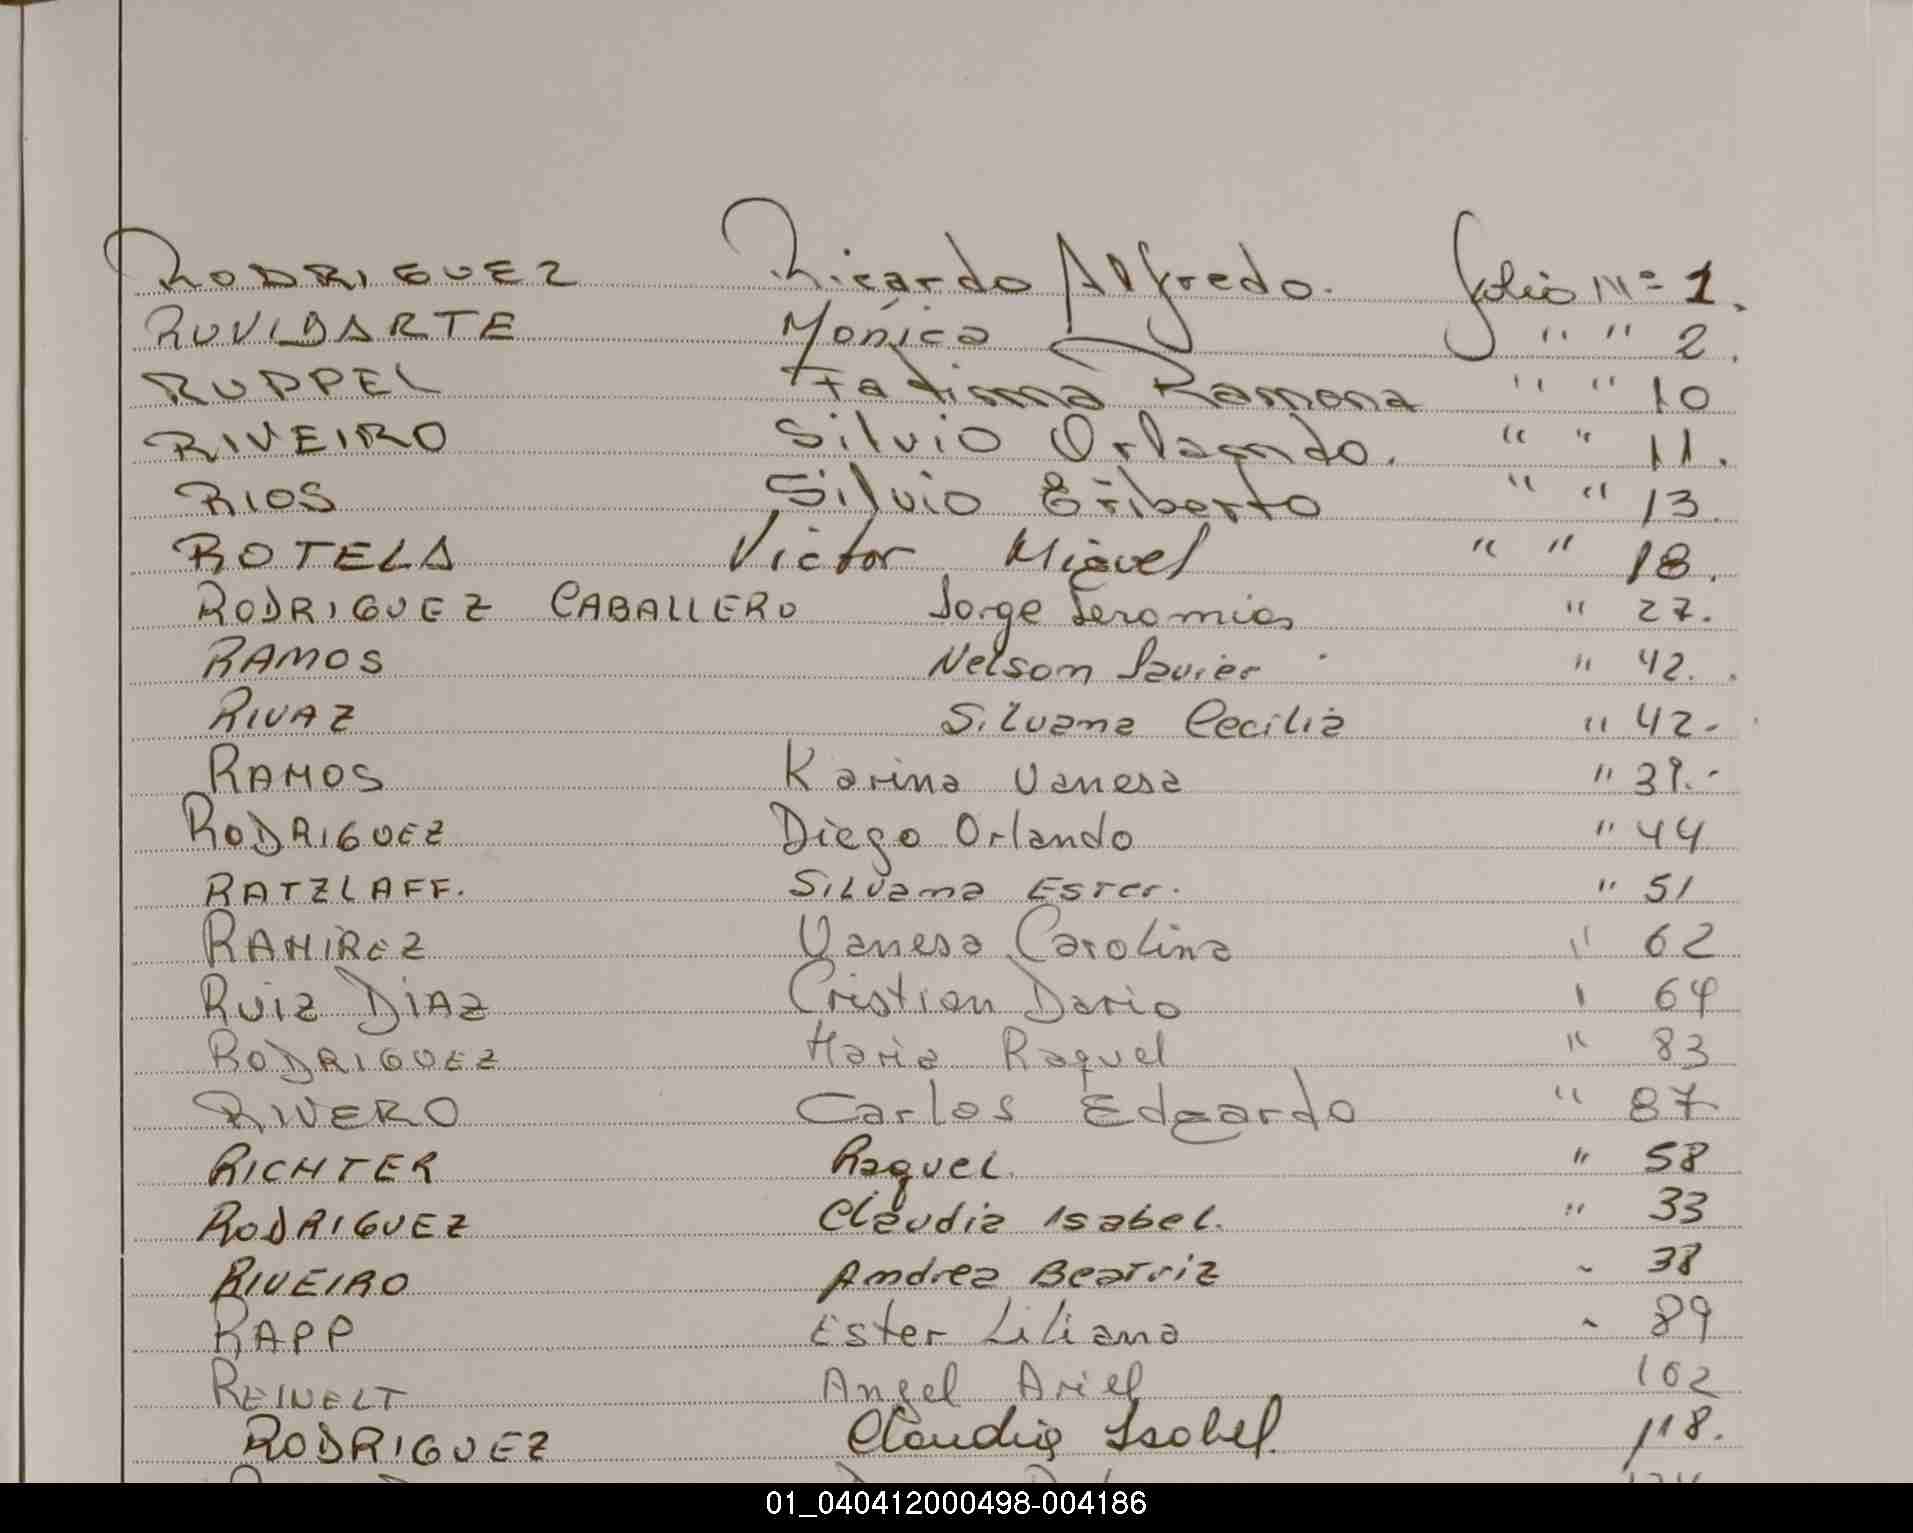 RODRIGUEZ Ricardo Alfredo. folio Nº 1.
RUVIDARTE Monica " " 2.
RUPPEL Fatima Ramona " " 10
RIVEIRO Silvio Orlando. " " 11.
RIOS Silvio Eriberto " " 13.
ROTELA Victor Miguel " " 18.
RODRIGUEZ CABALLERO Jorge Jeromias " 27.
RAMOS Nelson Javier " 42.
RIVAZ Silvana Cecilia " 42.-
RAMOS Karina Vanesa " 39.-
RODRIGUEZ Diego Orlando " 44
RATZLAFF. Silvana Ester. " 51
RAMIREZ Vanesa Carolina " 62
RUIZ DIAZ Cristian Dario " 64
RODRIGUEZ Maria Raquel " 83
RIVERO Carlos Edgardo " 87
RICHTER Raquel. " 58
RODRIGUEZ Claudia Isabel. " 33
RIVEIRO Andrea Beatriz " 38
RAPP Ester Liliana " 89
REINELT Angel Ariel 102
RODRIGUEZ Claudia Isabel. 118.
01_040412000498-004186